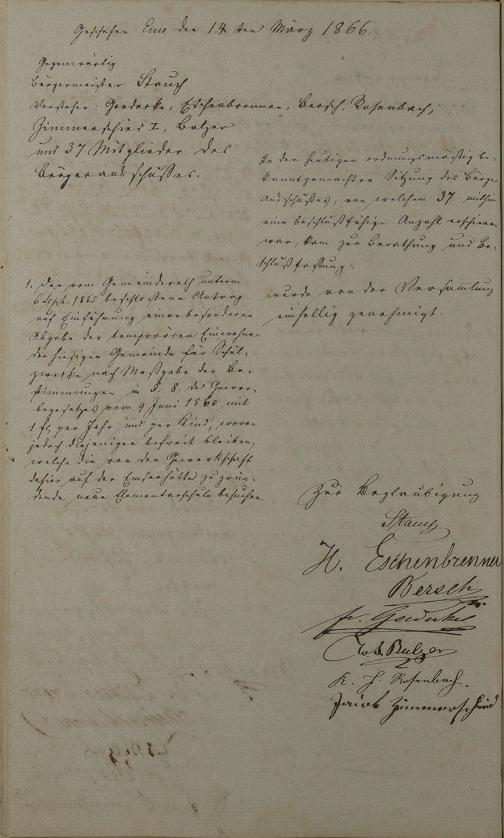 Geschehen Ems den 14ten März 1866.
Gegenwärtig
Bürgermeister Stauch
Vorsteher: Goedecke, Eschenbrenner, Bersch, Rosenbach,
Zimmerschied I, Balzer
und 37 Mitglieder des
Bürgerausschusses.
In der heutigen ordnungsmäßig be-
kanntgemachten Sitzung des Bürger-
ausschußes, von welchem 37 mithin
eine beschlußfähige Anzahl erschienen
war, kam zur Berathung und Be-
schlußfassung:
1. Der vom Gemeinderath unterm
6 Sept. 1865 beschlossene Antrag
auf Einführung einer besonderen
Abgabe der temporären Einwohner
der hiesigen Gemeinde für Schul-
zwecke nach Maßgabe der Be-
stimmungen in §. 8. des Gewer-
begesetzes vom 9 Juni 1860 mit
1 fl. per Jahr und per Kind, wovon
jedoch diejenigen befreit bleiben,
welche die von der Gewerkschaft
dahier auf der Emserhütte zu grün-
dende neue Elementarschule besuchen.
wurde von der Versamlung
einhellig genehmigt.
Zur Beglaubigung
H. Eschenbrenner
Bersch
Fr. Goedecke
Balzer
K. H. Rosenbach.
Jacob Zimmerschied